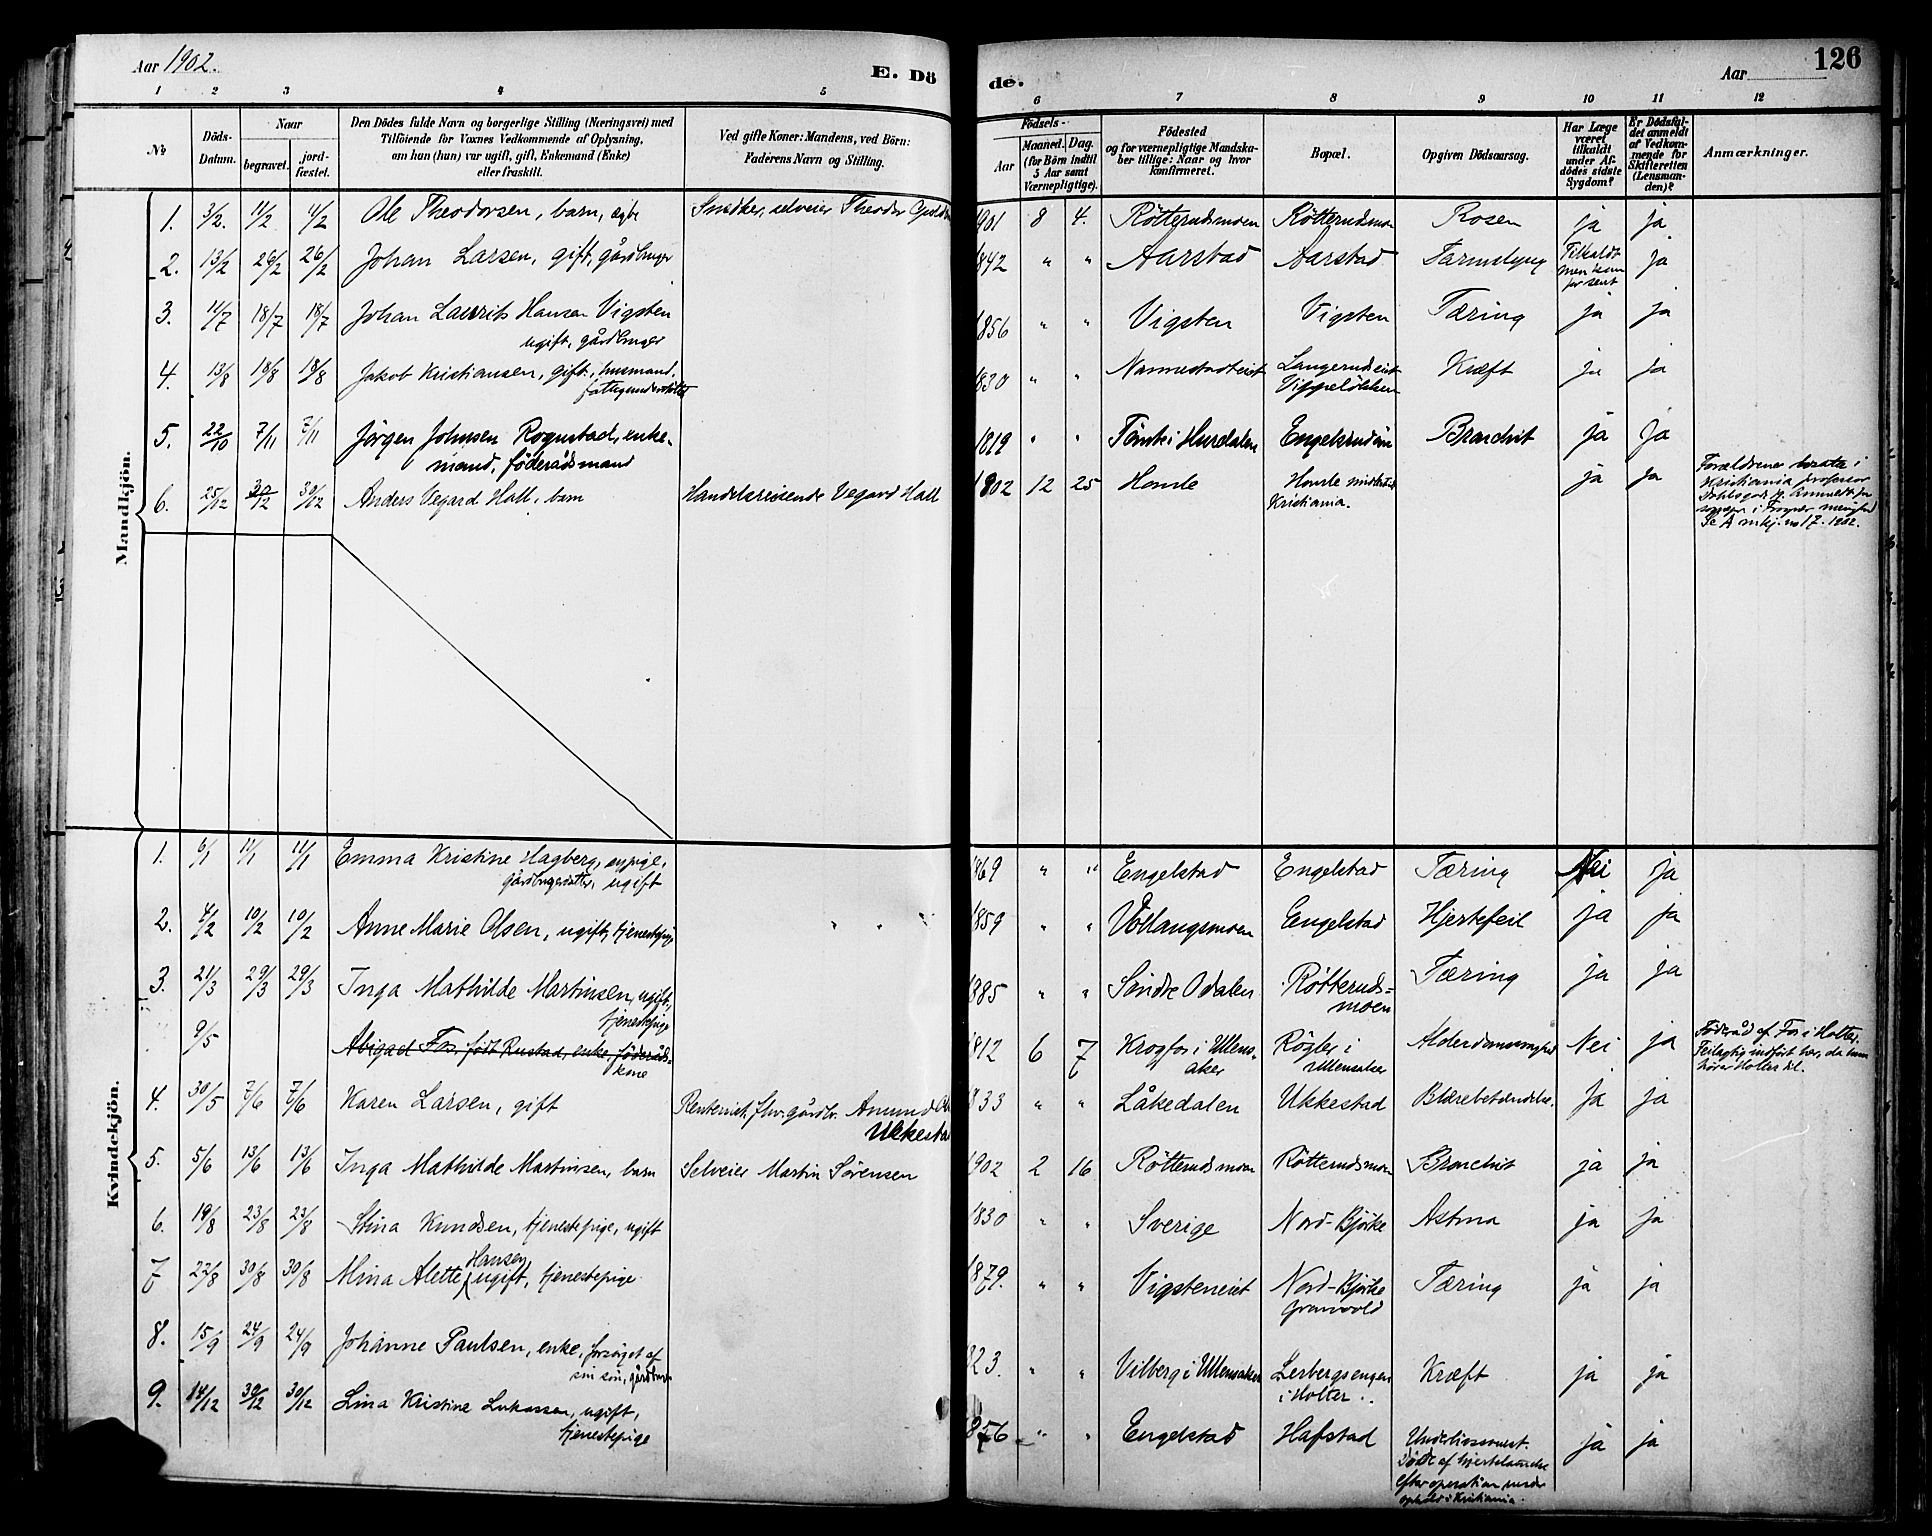 Aar 1902.
E. Dö
de.
Aar
126
1 2 3 4 5 6 7 8 9 10 11 12
No
Döds-Datum.
Naar
begravet.
jord-fæstet.
Den Dödes fulde Navn og borgerlige Stilling (Næringsvei) med
Tilföiende for Voxnes Vedkommende af Oplysning,
om han (hun) var ugift, gift, Enkemand (Enke)
eller fraskilt.
Ved gifte Koner: Mandens, ved Börn:
Faderens Navn og Stilling.
Födsels-
Aar
Maaned. Dag.
(for Börn indtil
5 Aar samt
Værnepligtige).
Födested
og for værnepligtige Mandska-
ber tillige: Naar og hvor
konfirmeret.
Bopæl.
Opgiven Dödsaarsag.
Har Læge
været
tilkaldt
under Af-
dödes sidste
Sygdom?
Er Dödsfal-
det anmeldt
af Vedkom-
mende for
Skifteretten
(Lensman-
den)?
Anmærkninger.
Mandkjön.
1. 3/2. 11/2 11/2 Ole Theodorsen, barn, ægte Snedker, selveier Theodor 1901 8 4. Rötterudsmoen Rötterudsmoen Rosen ja ja
2. 13/2 26/2 26/2 Johan Larsen, gift, gårdbruger 1842 " " Aarstad Aarstad Tarmslyng Tilkaldt ja
men kom
for sent
3. 11/7 18/7 18/7 Johan Laurits Hansen Vigsten 1856 " " Vigsten Vigsten Tæring ja ja
ugift, gårdbruger
4. 13/8 18/8 18/8 Jakob Kristiansen, gift, husmand, 1830 " " Nannestadeiet Langerudseiet Kræft ja ja
fattigunderstöttet Vippelökken
5. 22/10 7/11 7/11 Jørgen Johnsen Rognstad, enke- 1819 " " Tömte i Hurdalen Bronchit ja ja
mand, föderådsmand
6. 25/12 30/12 30/12 Anders Vegard Hall, barn Handelsreisende Vegard Hall 1902 12 25 Homle Homle ja ja
Kristiania.
Forældrene i
Kristiania professor
Se A mkj. no 17. 1902.
Kvindekjön.
1. 6/1 11/1 11/1 Emma Kristine Hagberg, sypige, 1869 " " Engelstad Engelstad Tæring Nei ja
gårdbrugerdatter, ugift
2. 4/2 10/2 10/2 Anne Marie Olsen, ugift, tjenestepige " " 1859 " " Vollaugsmoen Engelstad Hjertefeil ja ja
3. 21/3 29/3 29/3 Inga Mathilde Martinsen, ugift, 1885 " " Söndre Odalen Rötteruds- Tæring ja ja
tjenestepige moen
9/5 Abigael Fos, født Rustad, enke, föderåds- 1812 6 7 Krogfos i Ullens- Røgler i Alderdomssvaghed Nei ja Föderåd af Fos i Holter.
kone aker Ullensaker Feilagtig indført her, da hun
hører Holter til.
4. 30/5 7/6 7/6 Karen Larsen, gift Rentenist, fhv. gårdbr. Amund 1833 " " Låkedalen Ukkestad Blærebetændelse. Ja ja
Ukkestad
5. 5/6 13/6 13/6 Inga Mathilde Martinsen, barn Selveier Martin Sørensen 1902 2 16 Rötterudsmoen Rötterudsmoen Bronchit ja ja
6. 19/8 23/8 23/8 Stina Knudsen, tjenestepige, ugift 1830 " " Sverige Nord-Bjørke Astma ja ja
7 22/8 30/8 30/8 Mina Alette Hansen, ugift, tjenestepige 1879. " " Vigsteneiet Nord-Bjørke Tæring ja ja
Granvold
8. 15/9 24/9 24/9 Johanne Paulsen, enke, forsørget af 1823. " " Vilberg i Ullensaker Lerbergsengen Kræft ja ja
sin søn, gårdbr. i Holter.
9. 14/12 30/12 30/12 Lina Kristine Lukassen, ugift, 1856 " " Engelstad Hafstad Underlivssvulst. ja ja
tjenestepige Döde af hjertelammelse
efter operation under
ophold i Kristiania.